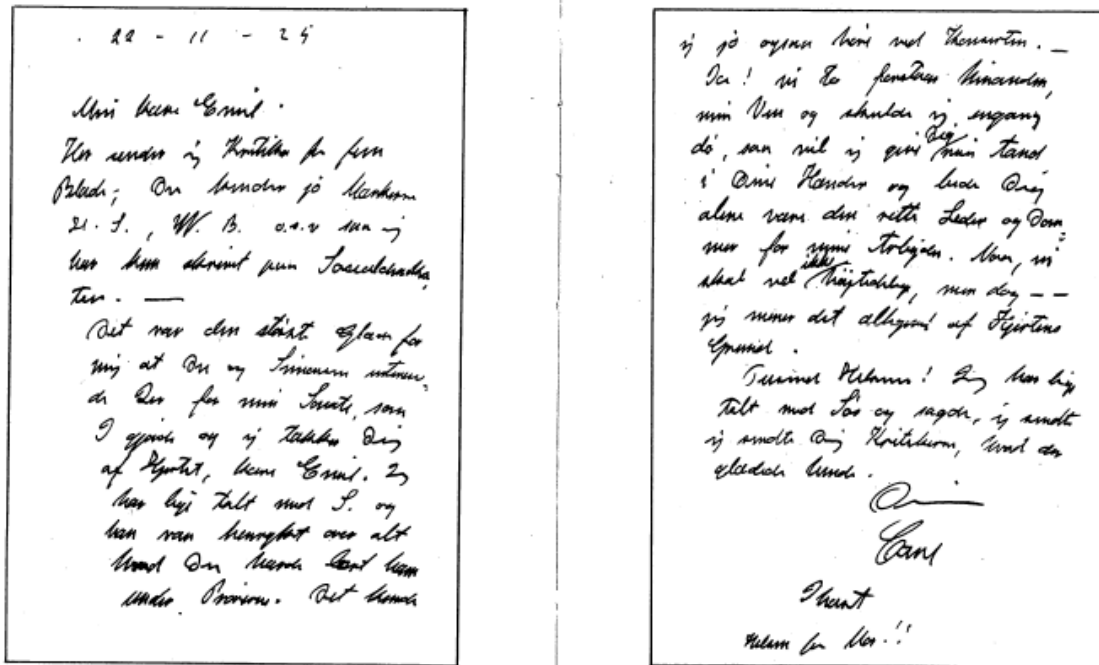 22 - 11 - 25
Min kære Emil.
Her sender jeg Kritikker fra fem
Blade; Du kender jo Mærkerne
S., W. B. o.s.v som jeg
har kun skrevet paa Socialdemokra,
ten. —
Det var den største Glæde for
mig at Du og Simonsen interes,
de Der for min Sonate, som
I gjorde og jeg takker Dig
af Hjertet, kære Emil. Jeg
har lige talt med S. og
han var henrykt over alt
hvad Du havde lært ham
under Prøverne. Det kunde
jeg jo ogsaa høre ved Koncerten. —
Ja! vi to forstaar hinanden,
min Ven og skulde jeg engang
dø, saa vil jeg give Dig min tand
i Dine Hænder og bede Dig
alene være den rette Leder og Dom=
mer for mine Arbejder. Naa, vi
skal vel ikke højtidelig, men dog — —
jeg mener det alligevel af Hjertens
Grund.
Tusind Hilsener! Jeg har lige
talt med Sös og sagde, jeg sendte
jeg sendte Dig Kritikkerne, hvad der
glædede hende.
Din
Carl
I hast
Hilsen fra Mor.!!